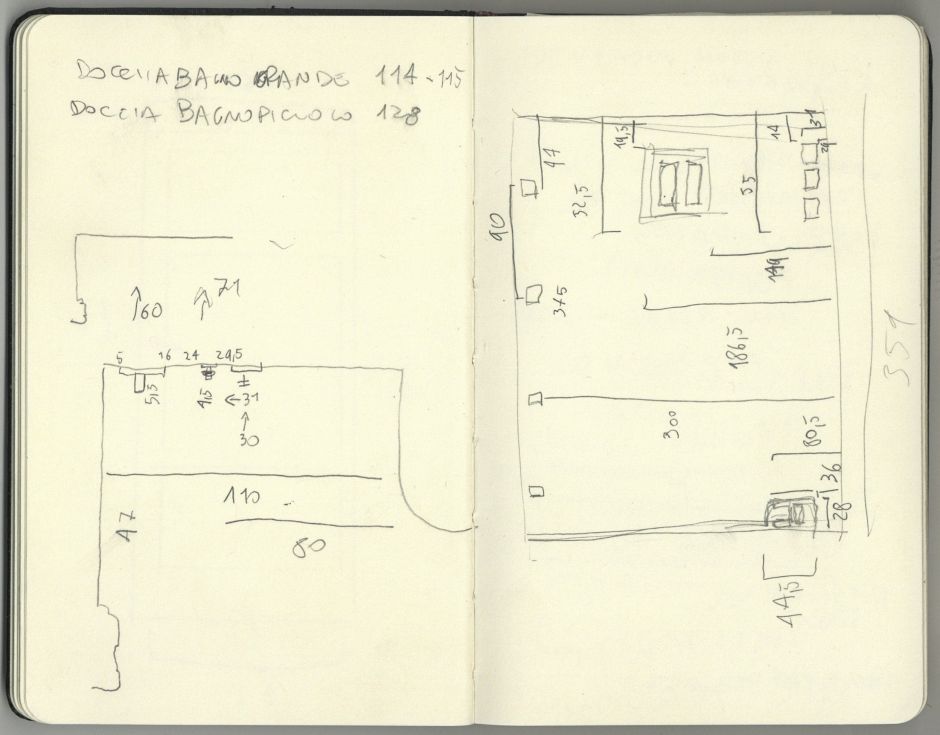 DOCCIA BAGNO GRANDE 114-115
DOCCIA BAGNO PICCOLO 128
60 71
5 16 24 24,5
5,5 4,5 31
30
110
47
80
31
19,5 14
29
41
32,5 55
90
149
375
186,5
351
300
80,5
36
28
44,5